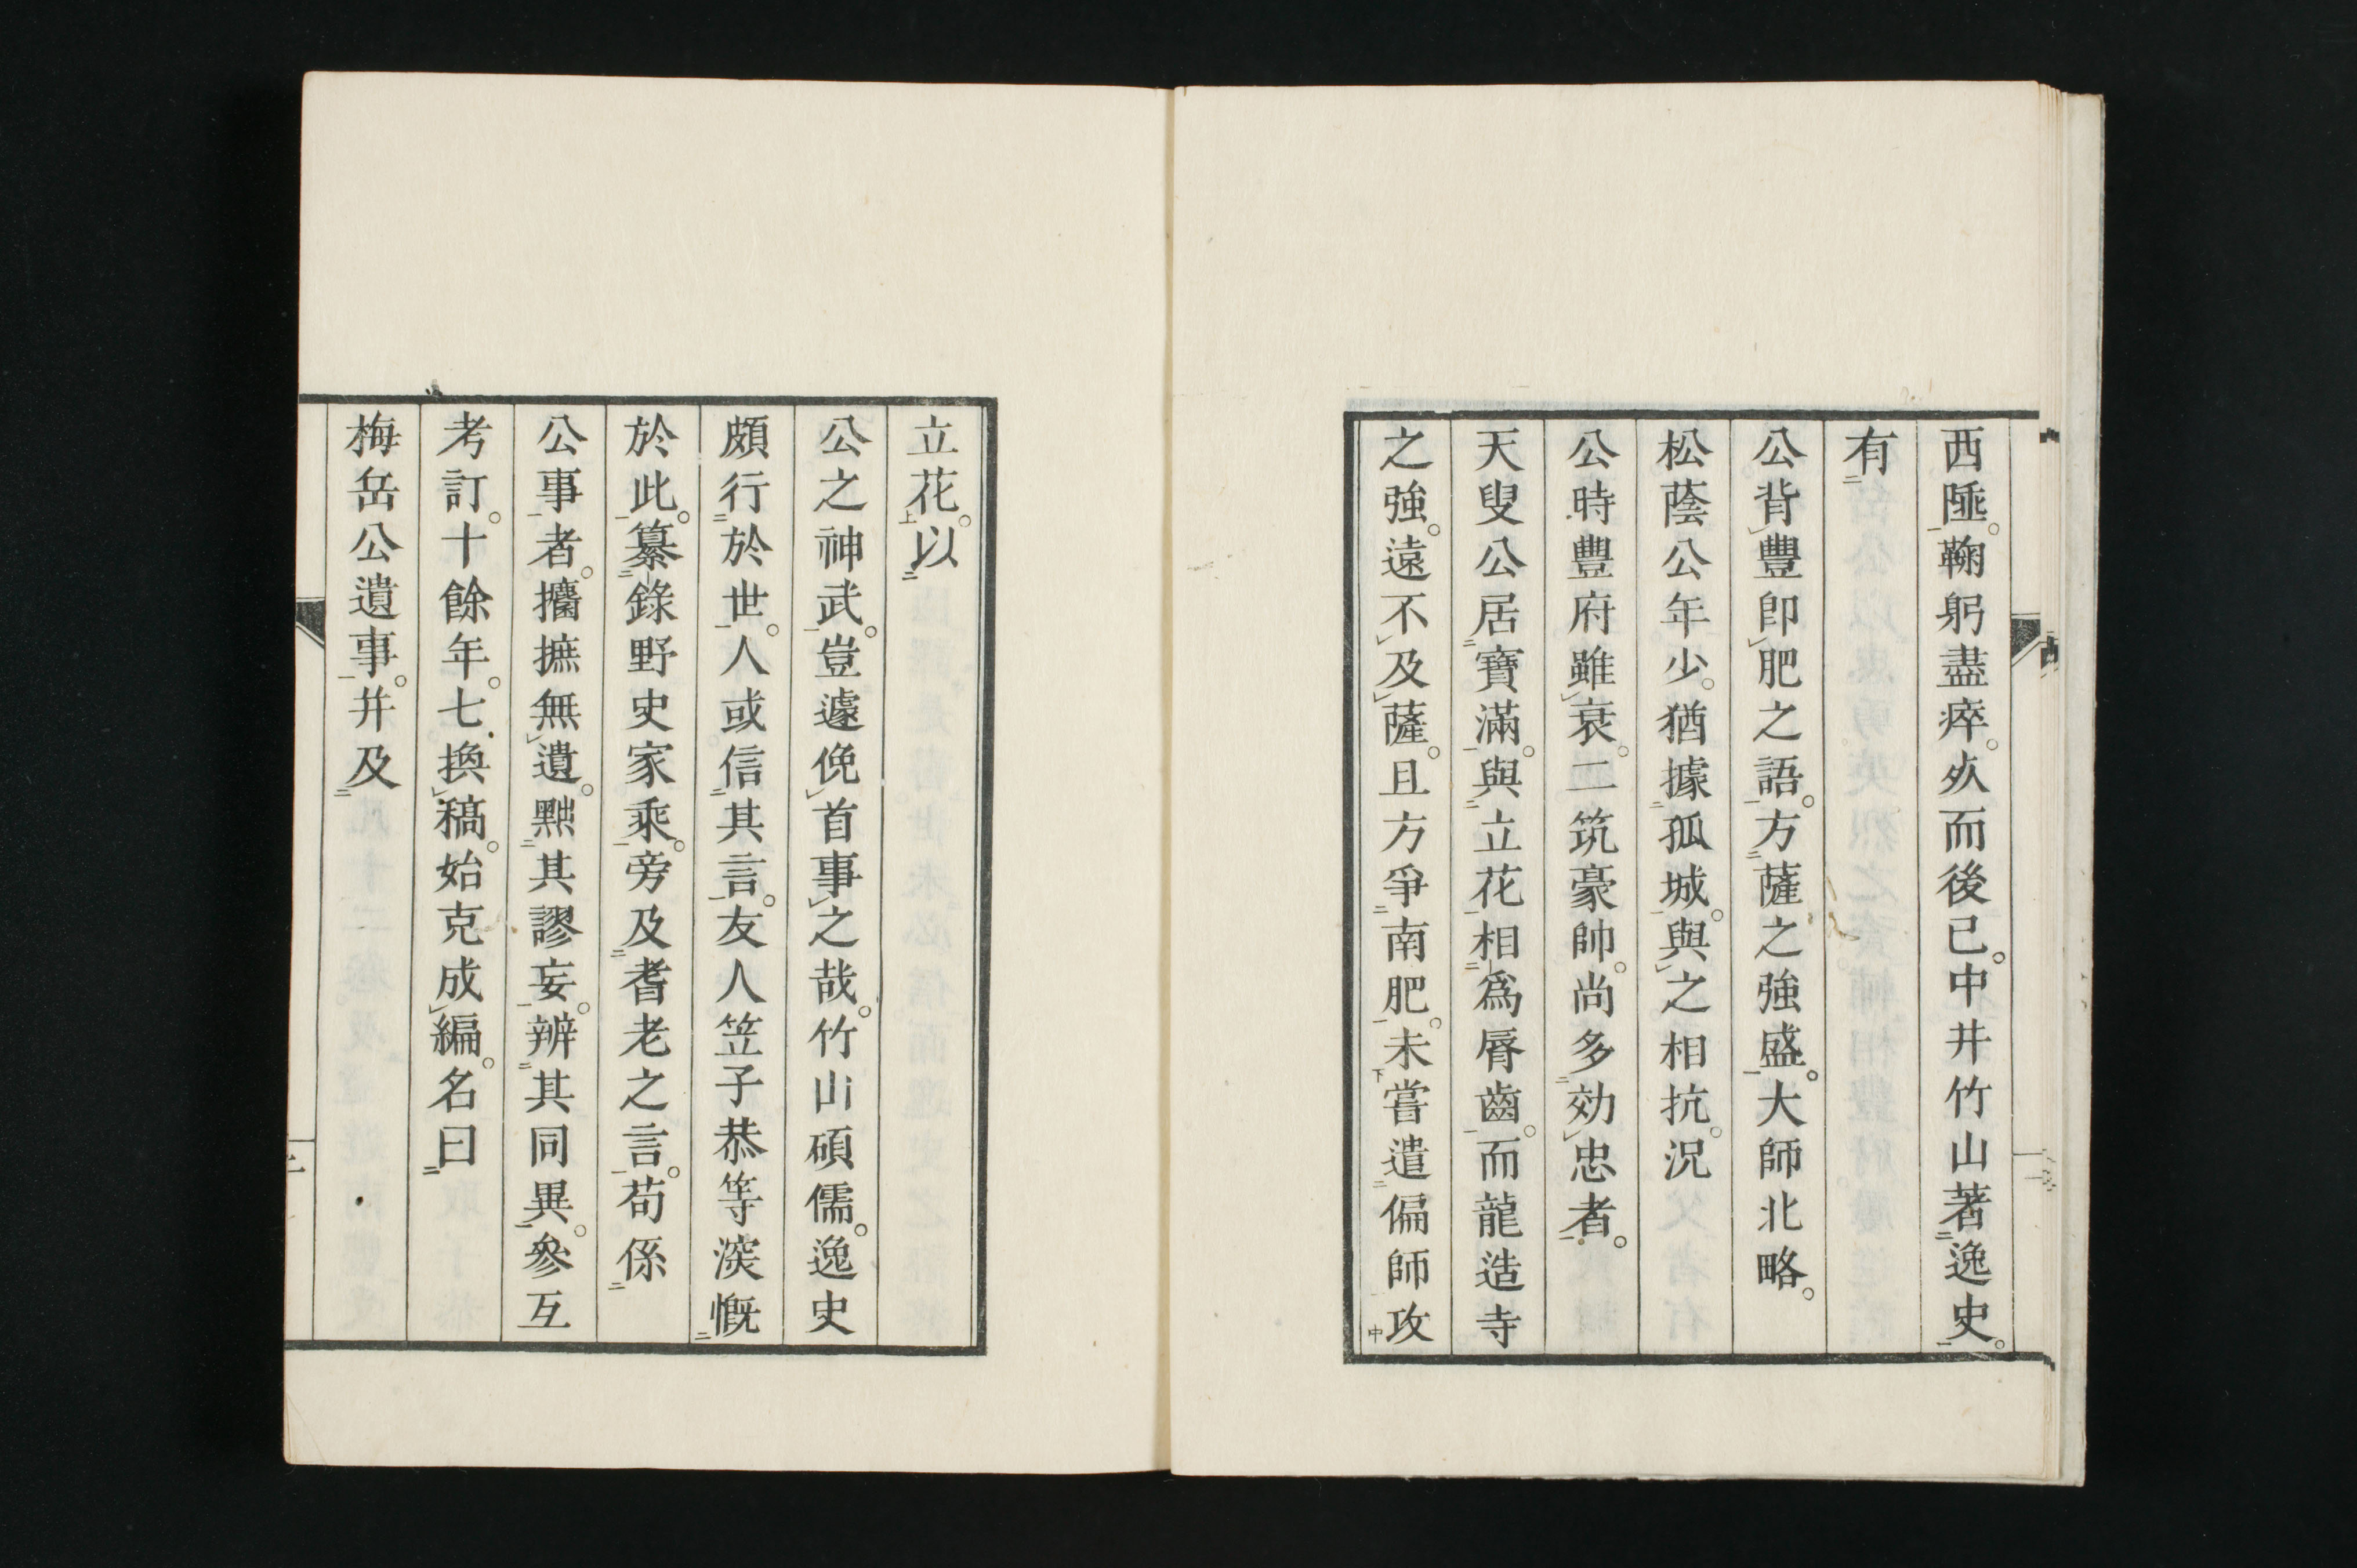 西陲。鞠躬盡瘁。死而後已。中井竹山著逸史。
有
公背豐卽肥之語。方薩之強盛。大師北略。
松蔭公年少。猶據孤城。與之相抗。況
公時豐府雖衰。二筑豪帥。尚多効忠者。
天叟公居寶滿。與立花相爲脣齒。而龍造寺
之強。遠不及薩。且方爭南肥。未嘗遣偏師攻
立花。以
公之神武。豈遽俛首事之哉。竹山碩儒。逸史
頗行於世。人或信其言。友人笠子恭等深慨
於此。纂錄野史家乘。旁及耆老之言。苟係
公事者。攟摭無遺。黜其謬妄。辨其同異。參互
考訂。十餘年。七換稿。始克成編。名曰
梅岳公遺事。并及